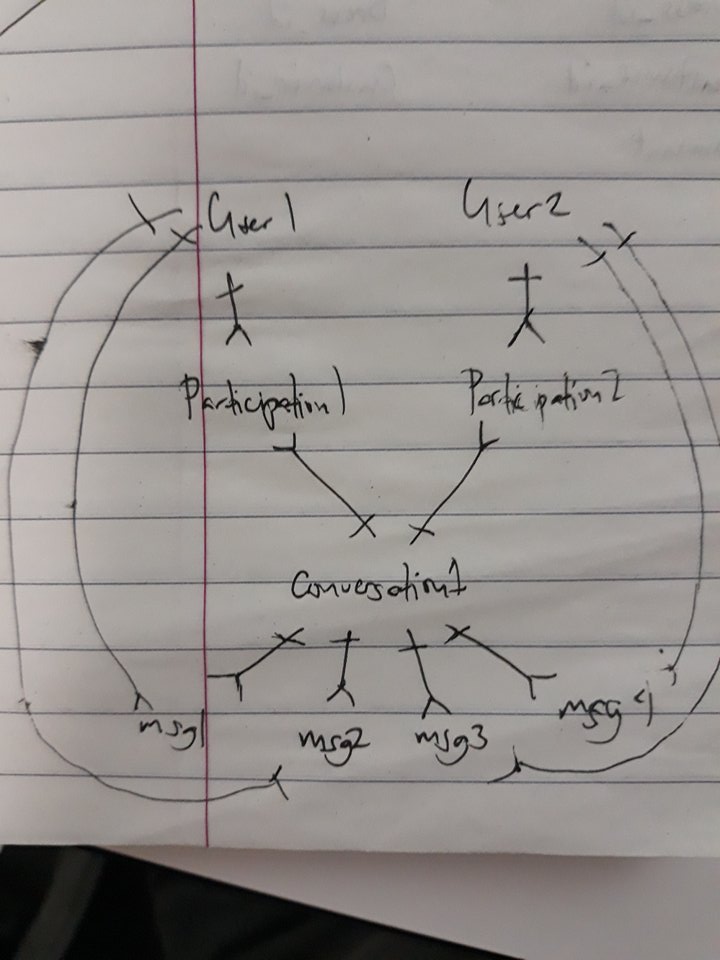 User1 User2
Participation1 Participation2
Conversation1
msg1 msg2 msg3 msg4